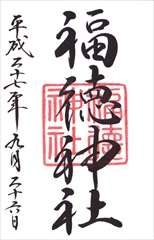 福徳神社
平成二十七年九月二十六日
福徳神社